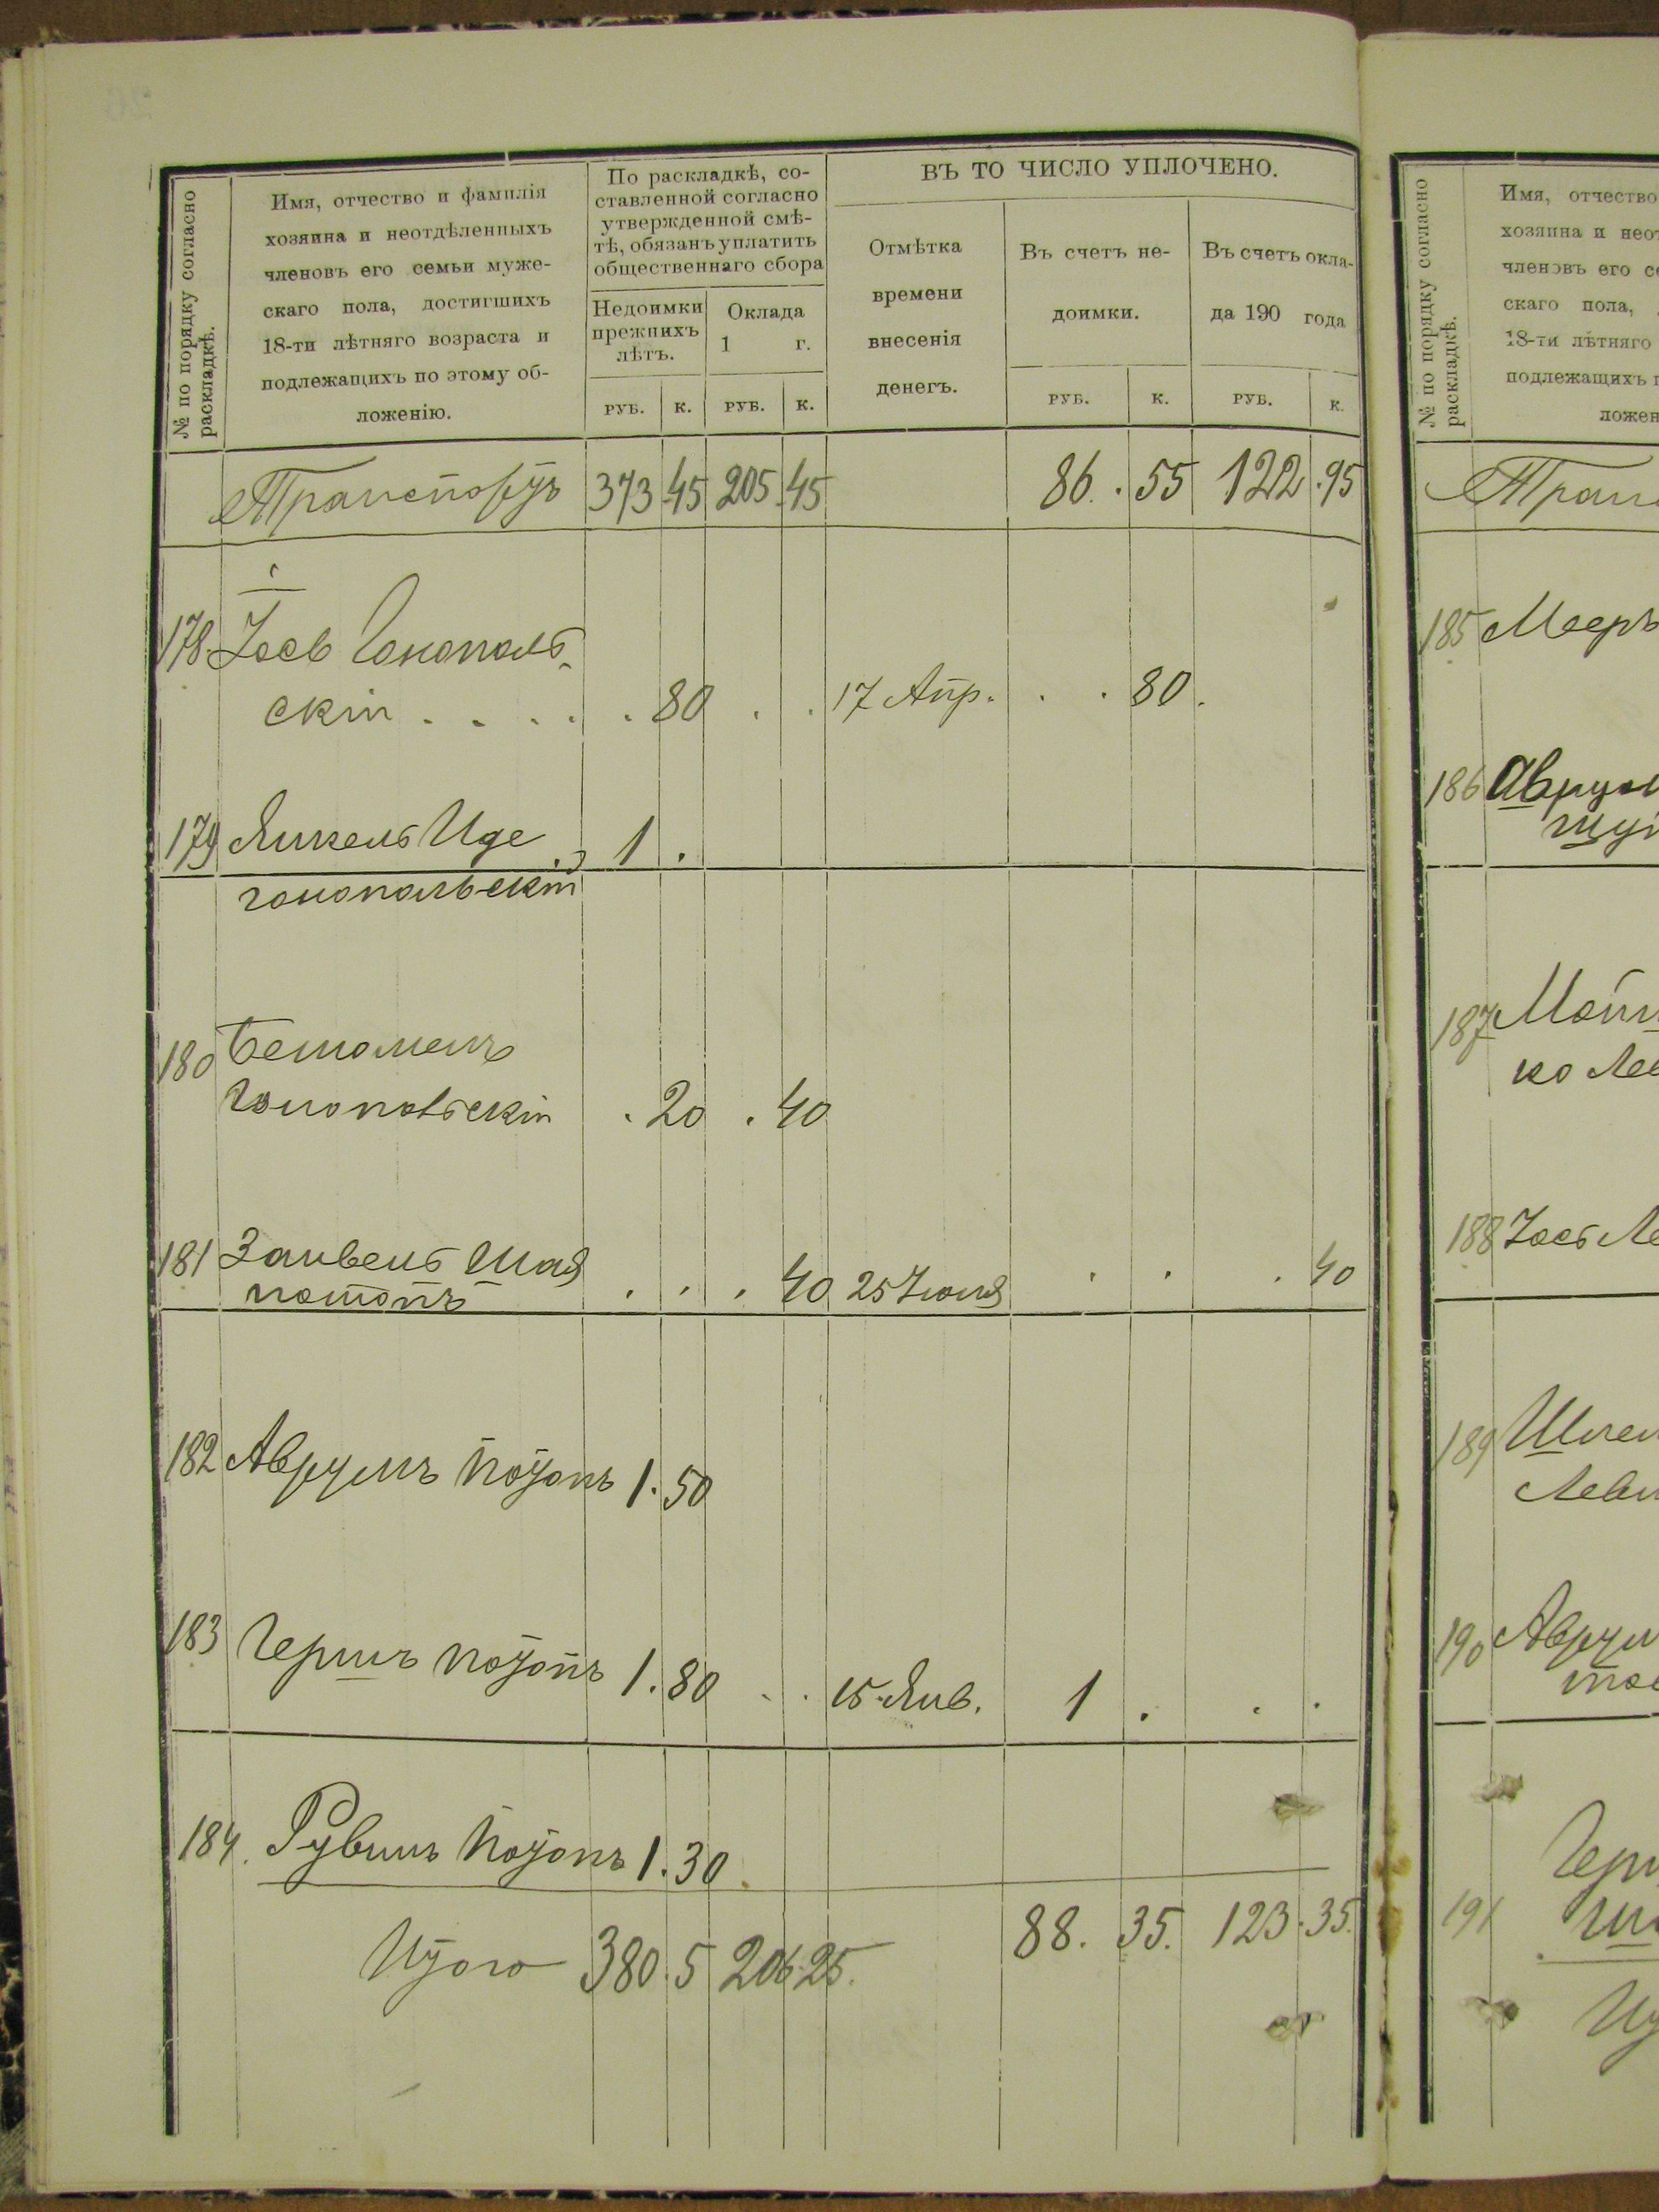 № по порядку согласно раскладкѣ.
Имя, отчество и фамилія
хозяина и неотдѣленныхъ
членовъ его семьи муже-
скаго пола, достигшихъ
18-ти лѣтняго возраста и
подлежащихъ по этому об-
ложенію.
По раскладкѣ, со-
ставленной согласно
утвержденной смѣ-
тѣ, обязанъ уплатить
общественнаго сбора
Недоимки
прежнихъ
лѣтъ.
Оклада
1 г.
РУБ. К. РУБ. К.
ВЪ ТО ЧИСЛО УПЛОЧЕНО.
Отмѣтка
времени
внесенія
денегъ.
Въ счетъ не-
доимки.
РУБ. К.
Въ счетъ окла-
да 190 года
РУБ. К.
Транспортъ 373 45 205 45 86. 55 122.95
178. Іосъ Гонополь-
скій . . . . . 80 . . 17 Апр. . . 80.
179 Янкель Иде 1 .
гонопольскій
180
Гонопольскій . 20 . 40
181 Занвель Шая . . . 40 25 Іюля . . . 40
потопъ
182 Аврумъ Потопъ 1.50
183 Гершъ потопъ 1.80 . . 15 Янв. 1 . . .
184. Рувинъ Потопъ 1.30.
Итого 380.5 206.25. 88. 35. 123.35.
№ по порядку согласно раскладкѣ.
Имя, отчество
хозяина и неот
членовъ его се
скаго пола,
18-ти лѣтняго
подлежащихъ п
ложен
Транс
185 Мееръ
186 Аврум
187
ко Ле
188 Іось Ле
189 Шлем
Леви
190 Аврум
191 Герш
Ит